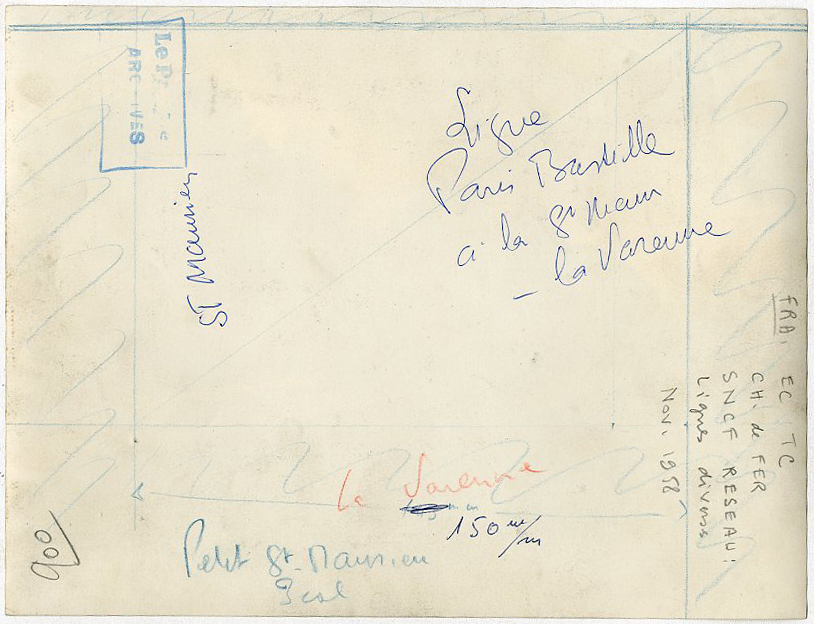 Le
ARCHIVES
Ligne
Paris Bastille
à la St Maur
- la Varenne
ST Maurien
FRA. EC TC
CH. de FER
SNCF RESEAU:
Lignes diverses
Nov. 1958
la Varenne
150 m/m
Petit St. Maurien
3 col
900